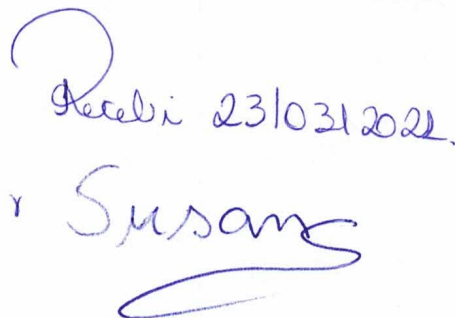 Recebi 23/03/2022.
Susan